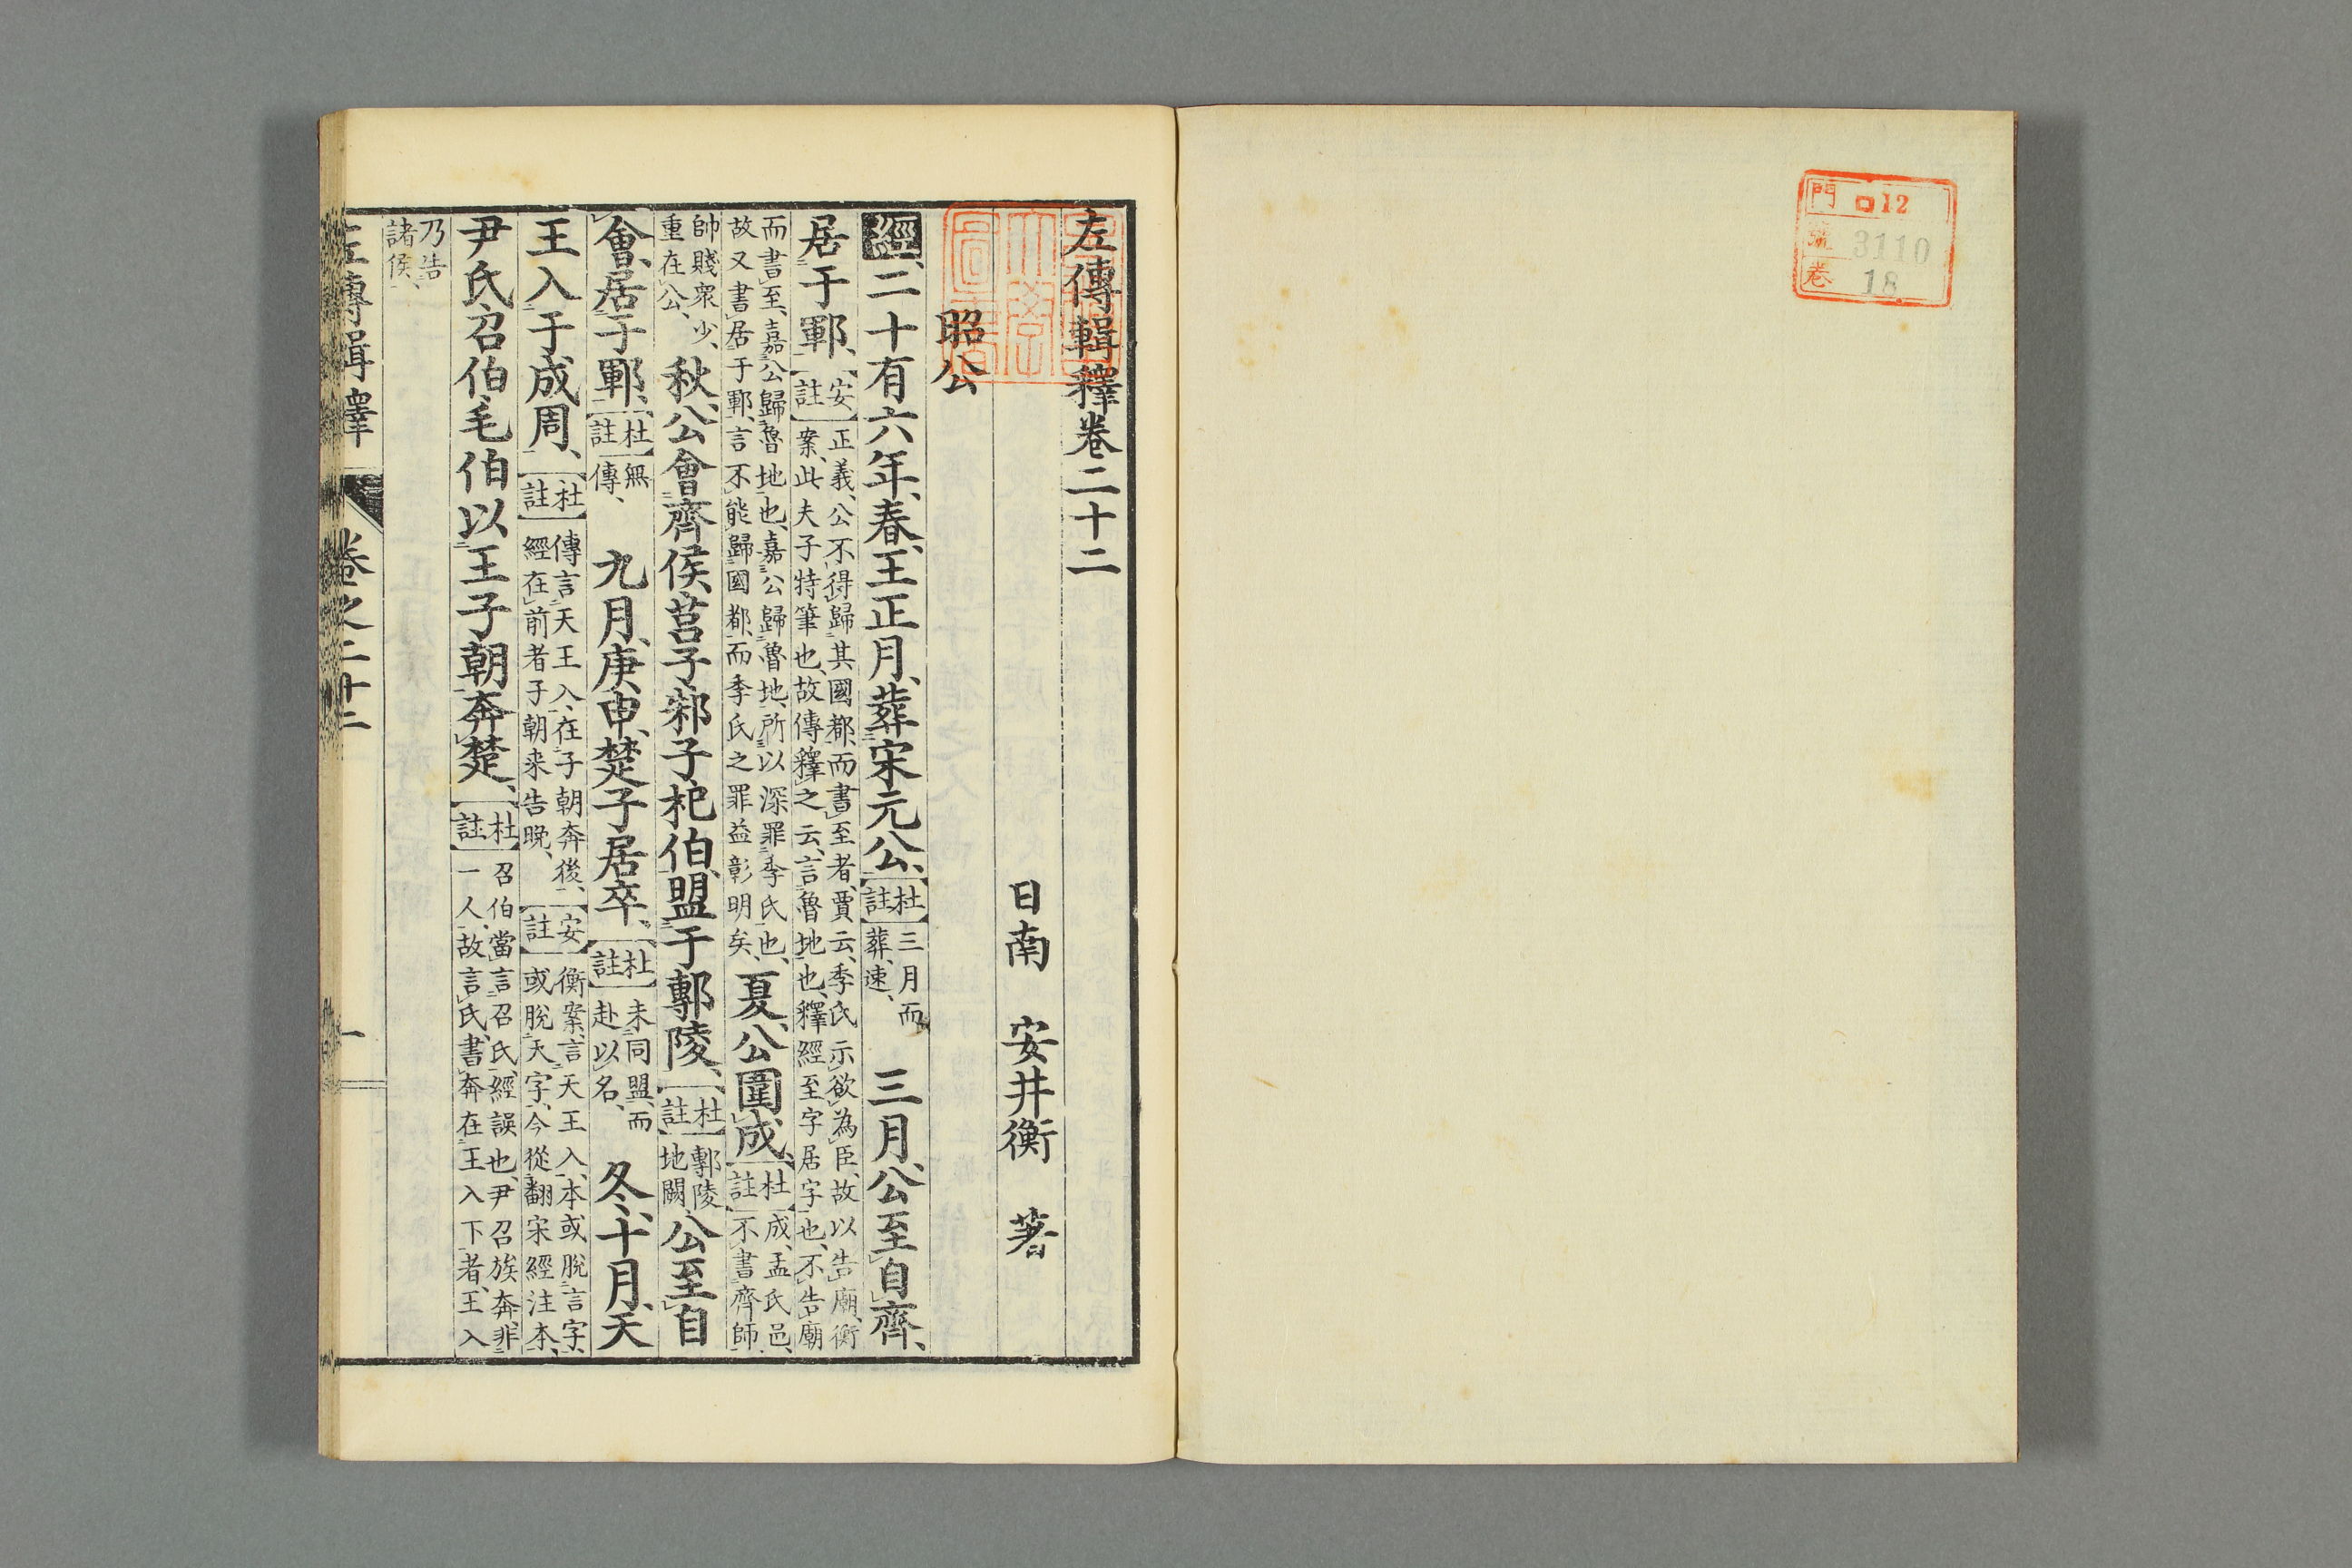 門 ロ12
號 3110
卷 18
左傳輯釋卷二十二
日南 安井衡 著
昭公
經、二十有六年、春、王正月、葬宋元公、【杜註】三月而葬、速、 三月、公至自齊、
居于鄆、【安註】正義、公不得歸其國都、而書至者、賈云、季氏示欲為臣、故以告廟、衡案、此夫子特筆也、故傳釋之云、言魯地也、釋經至字居字也、不告廟
而書至、嘉公歸魯地也、嘉公歸魯地、所以深罪季氏也、故又書居于鄆、言不能歸國都、而季氏之罪益彰明矣、夏、公圍成、【杜註】成、孟氏邑、不書齊師、
帥賤衆少、重在公、 秋、公會齊侯莒子邾子杞伯、盟于鄟陵、【杜註】鄟陵地闕、公至自
會、居于鄆、【杜註】無傳、 九月、庚申、楚子居卒、【杜註】未同盟、而赴以名、 冬、十月、天
王入于成周、【杜註】傳言天王入、在子朝奔後、經在前者、子朝来告晚、【安註】衡案、言天王入、本或脫言字、或脫天字、今從翻宋經注本、
尹氏召伯毛伯以王子朝奔楚、【杜註】召伯當言召氏、經誤也、尹召族奔、非一人、故言氏、書奔在王入下者、王入
乃告諸侯、
左傳輯釋 卷之二十二 一